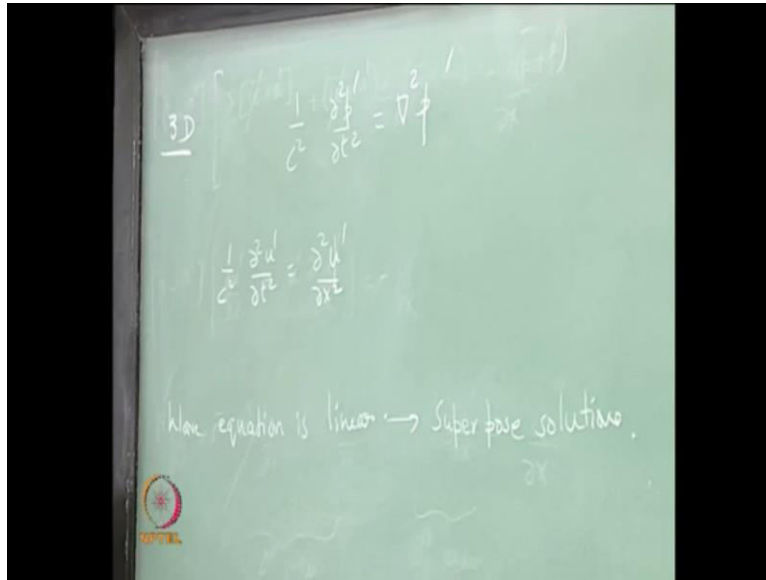 3D [ 1/c² ∂²p'/∂t² = ∇²p'
1/c² ∂²u'/∂t² = ∂²u'/∂x²
Wave equation is linear → Superpose solutions.
∂x
NPTEL